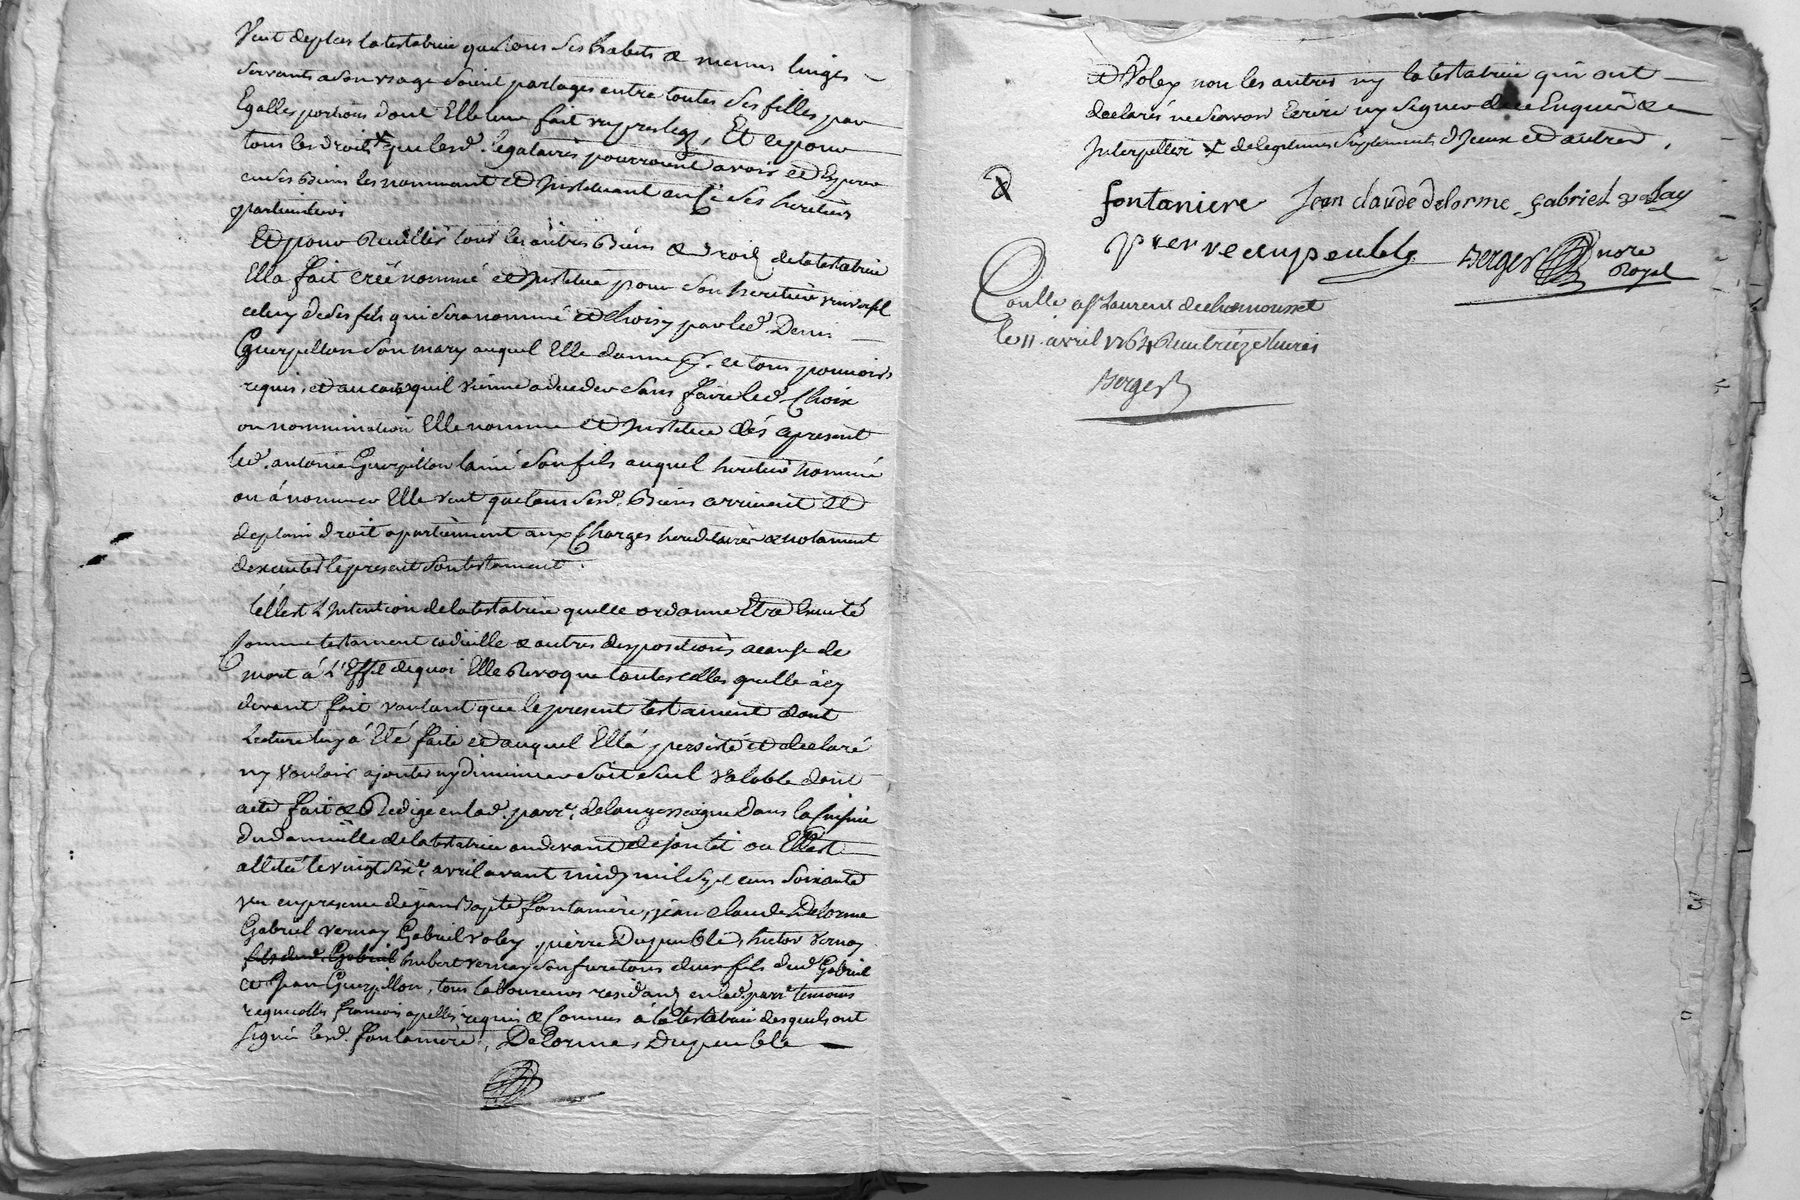 Veut deplus la testatrice que tous ses habits & menus linges
servants a son usage soient partagés entre toutes ses filles par
Egalles portions dont Elle leur fait un prelegs, Et ce pour
tous les droits x que lesd. legataires pourroient avoir et Esperer
en ses Biens les nommant et Instituant ainsi ses heritiers
particuliers
Et pour Recuillir tous les autres Biens & droits de la testatrice
Ella fait créé nommé et Institué pour son heritier universel
celuy de ses fils qui sera nommé et choisy par led. Denis
Guerpillon son mary auquel Elle donne pr. ce tous pouvoirs
requis, et au cas quil vienne a deceder sans faire led. Choix
ou nommination Elle nomme et Institue dés apresent
led. antoine Guerpillon lainé son fils auquel heritier nommé
ou á nommer Elle veut que tous sesd. Biens arrivent et
deplain droit apartiennent aux Charges hereditaires & notament
dexecuter le present son testament.
telle est L'Intention de la testatrice quelle ordonne Etre Executé
Comme testament codicille & autres dispositions acause de
mort á L'Effet de quoi Elle Revoque toutes celles quelle a cy
devant fait voulant que le present testament dont
Lecture luy á Eté faite et auquel Ella persisté et declaré
ny vouloir ajouter ny diminuer soit seul valable dont
acte fait & Redigé en lad. parr.e de longessaigne dans la Cuisine
du domicille de la testatrice au devant de son lit ou Elle est
allitée le vingt six.e avril avant midy mil sept cens soixante
un en presence de jean Bapte fontaniere, jean claude Delorme
Gabriel vernay Gabriel voley pierre Dupeuble, hector vernay
fils dud. Gabriel hubert vernay son fils tous deux fils dud Gabriel
et Jean Guerpillon, tous laboureurs residants en lad. parr.e temoins
regnicolles francois apellés, requis & Connus á la testatrice desquels ont
signé lesd. fontaniere, Delorme, Dupeuble
et Voley non les autres ny la testatrice qui ont
declarés ne scavoir Ecrire ny signer de ce Enquis &
Interpellés x de legitimes suplements d'Iceux et autres.
fontaniere Jean claude delorme gabriel volay
pierre dupeuble Berger nore
Royal
Conllé a St Laurent de chamousset
le 11 avril 1764 Reçu treize livres
Berger